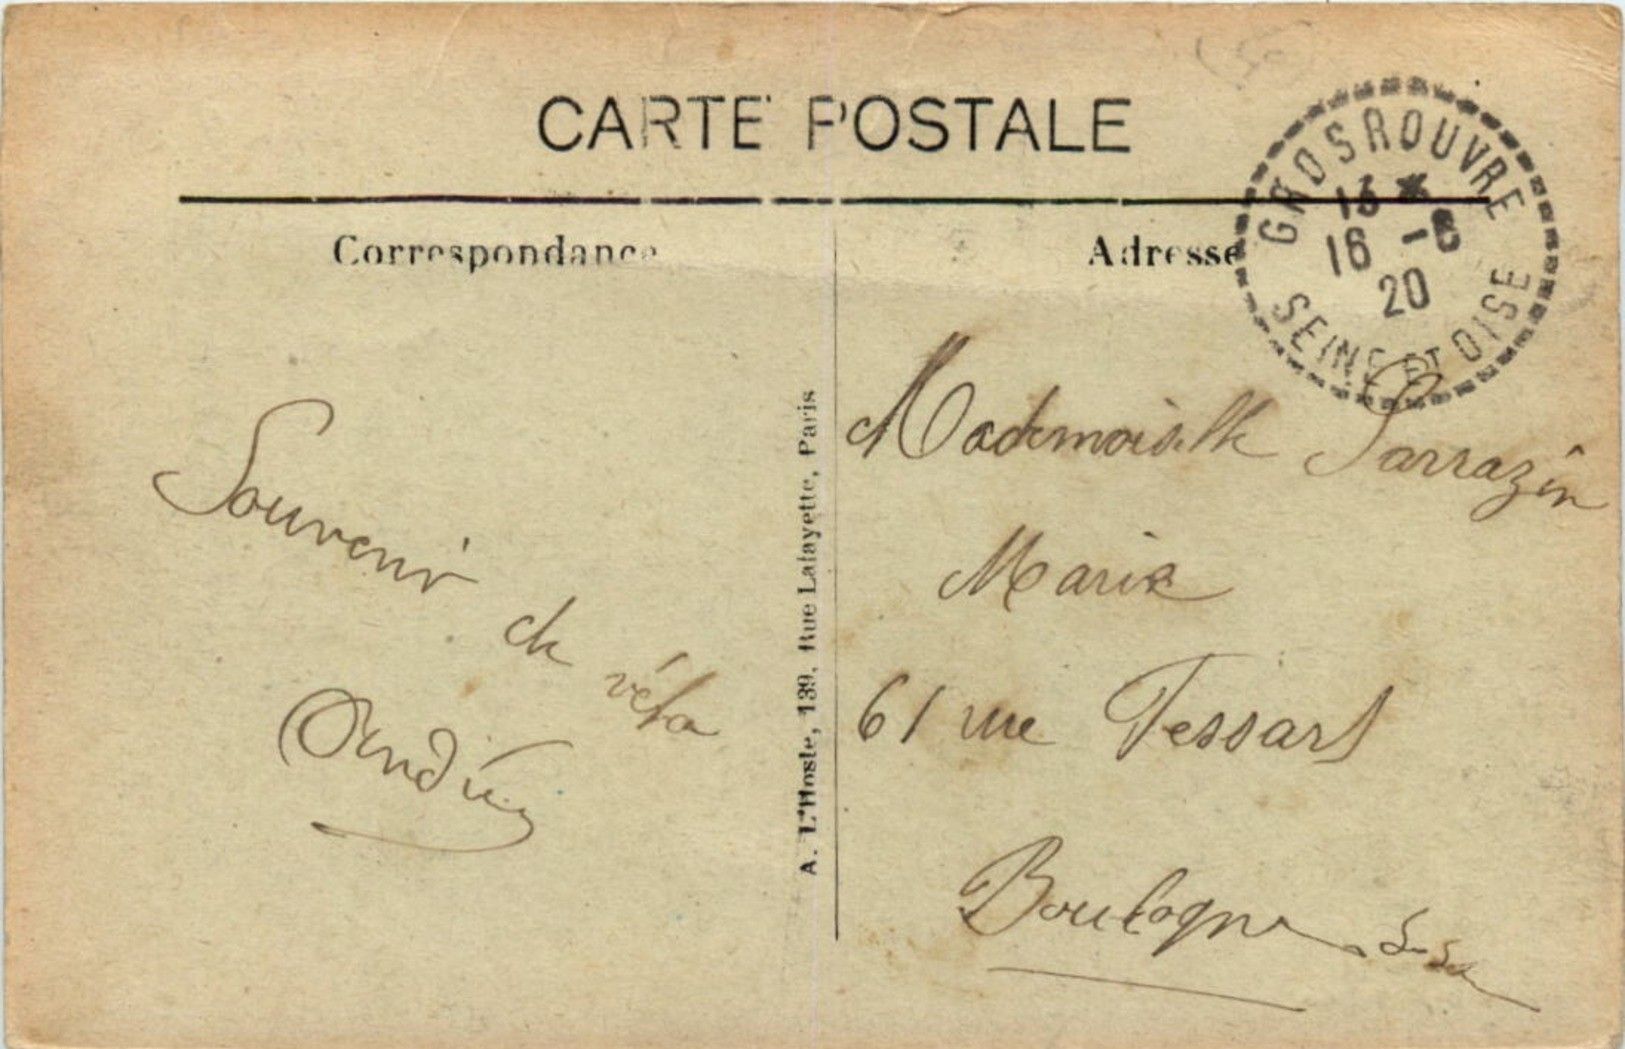 CARTE POSTALE
Correspondance
Adresse
GROSROUVRE
13 *
16 -6
20
SEINE ET OISE
Souvenir
de
A. L'Hoste, 139, Rue Lafayette, Paris
Mademoiselle Sarrazin
Marie
61 rue Tessart
Boulogne S-Se